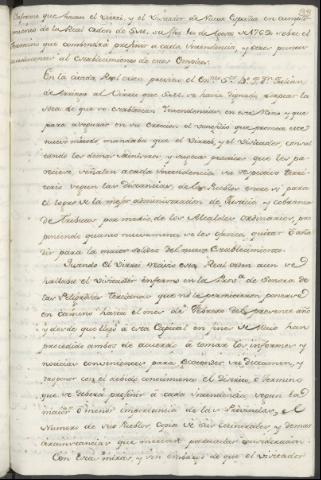 Informe que hacen el Virrei, y el Visitador de Nueva España en cumpli
miento de la Real orden de S.M. su fha de Agosto de 1769 sobre el
Termino que combendrá prefinir a cada Yntendencia, y otros puntos
concernientes al Establecimiento de estos Empleos.
En la citada Real orden previno el Exmo Sor Dn Fr. Julian
de Arriaga al Virrei que S.M. se havia dignado aceptar la
idea de que se establezcan Yntendencias en este Reino y que
para asegurar en su creccion el beneficio que promete este
nuevo méthodo mandaba que el Virrei, y el Visitador, consul
tando los demas Ministros, y sugetos practicos que les pa
reciese señalen a cada Yntendencia su respectivo terri
torio segun las distancias de los Pueblos entre sí para
el logro de la mejor administracion de Justicia y cobranza
de Tributos por medio de los Alcaldes ordinarios, pro
poniendo quanto nuevamente se les ofrezca quitar o aña
dir para la maior solidez del nuevo Establecimiento.
Quando el Virrei recivió esta Real orden aun se
hallaba el Visitador enfermo en la Prova de Sonora de
las Peligrosas tercianas que no le permitieron ponerse
en camino hasta el mes de Febrero del presente año
y desde que llegó a esta Capital en fines de Maio han
procedido ambos de acuerdo a tomar los informes y
noticias convenientes para extender su dictamen, y
exponer con el debido conocimiento el Distrito o termino
que se deberá prefinir á cada Yntendencia segun la
maior o menor importancia de las Provincias, el
Numero de sus Pueblos, copia de sus Minerales y demas
circunstancias que merecen particular consideracion.
Con estas miras, y sin embargo de que el Visitador